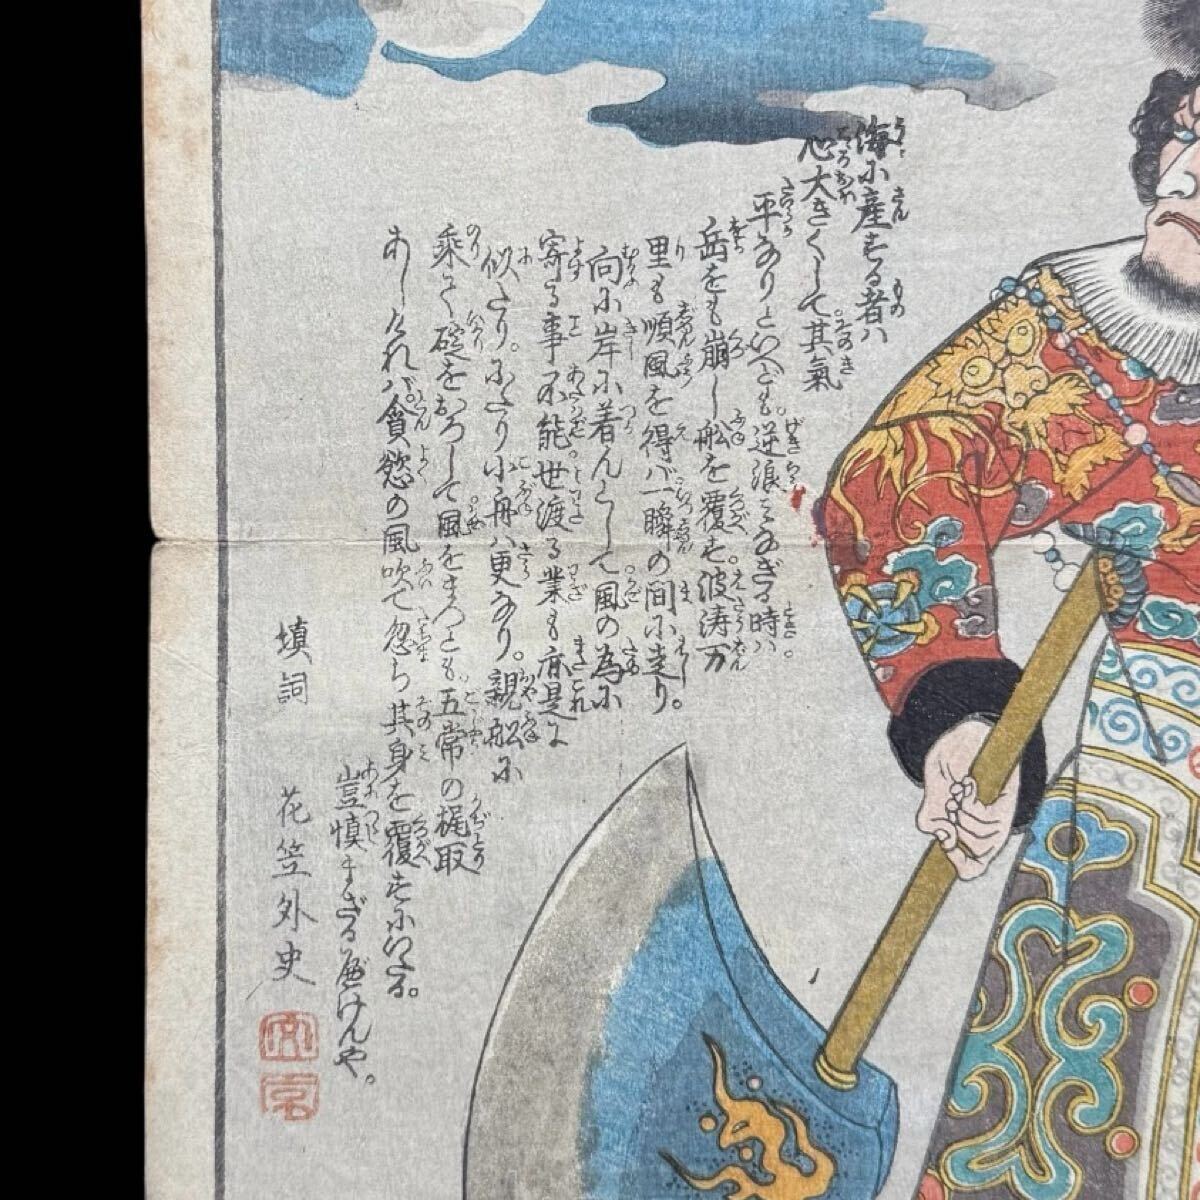 海に産する者ハ
心大きくして其氣
平なりといへども。逆浪みなぎる時ハ
岳をも崩し船を覆す。波涛万
里も順風を得バ一瞬の間に走り。
向に岸に着んとして風の為に
寄る事不能世渡る業も亦是に
似たり。にたり小舟ハ更なり。親船に
乗て碇をおろして風をまつとも。五常の梶取
あしけれバ。貪慾の風吹て忽ち其身を覆すにいたる。
豈慎まざるべけんや。
填詞 花笠外史